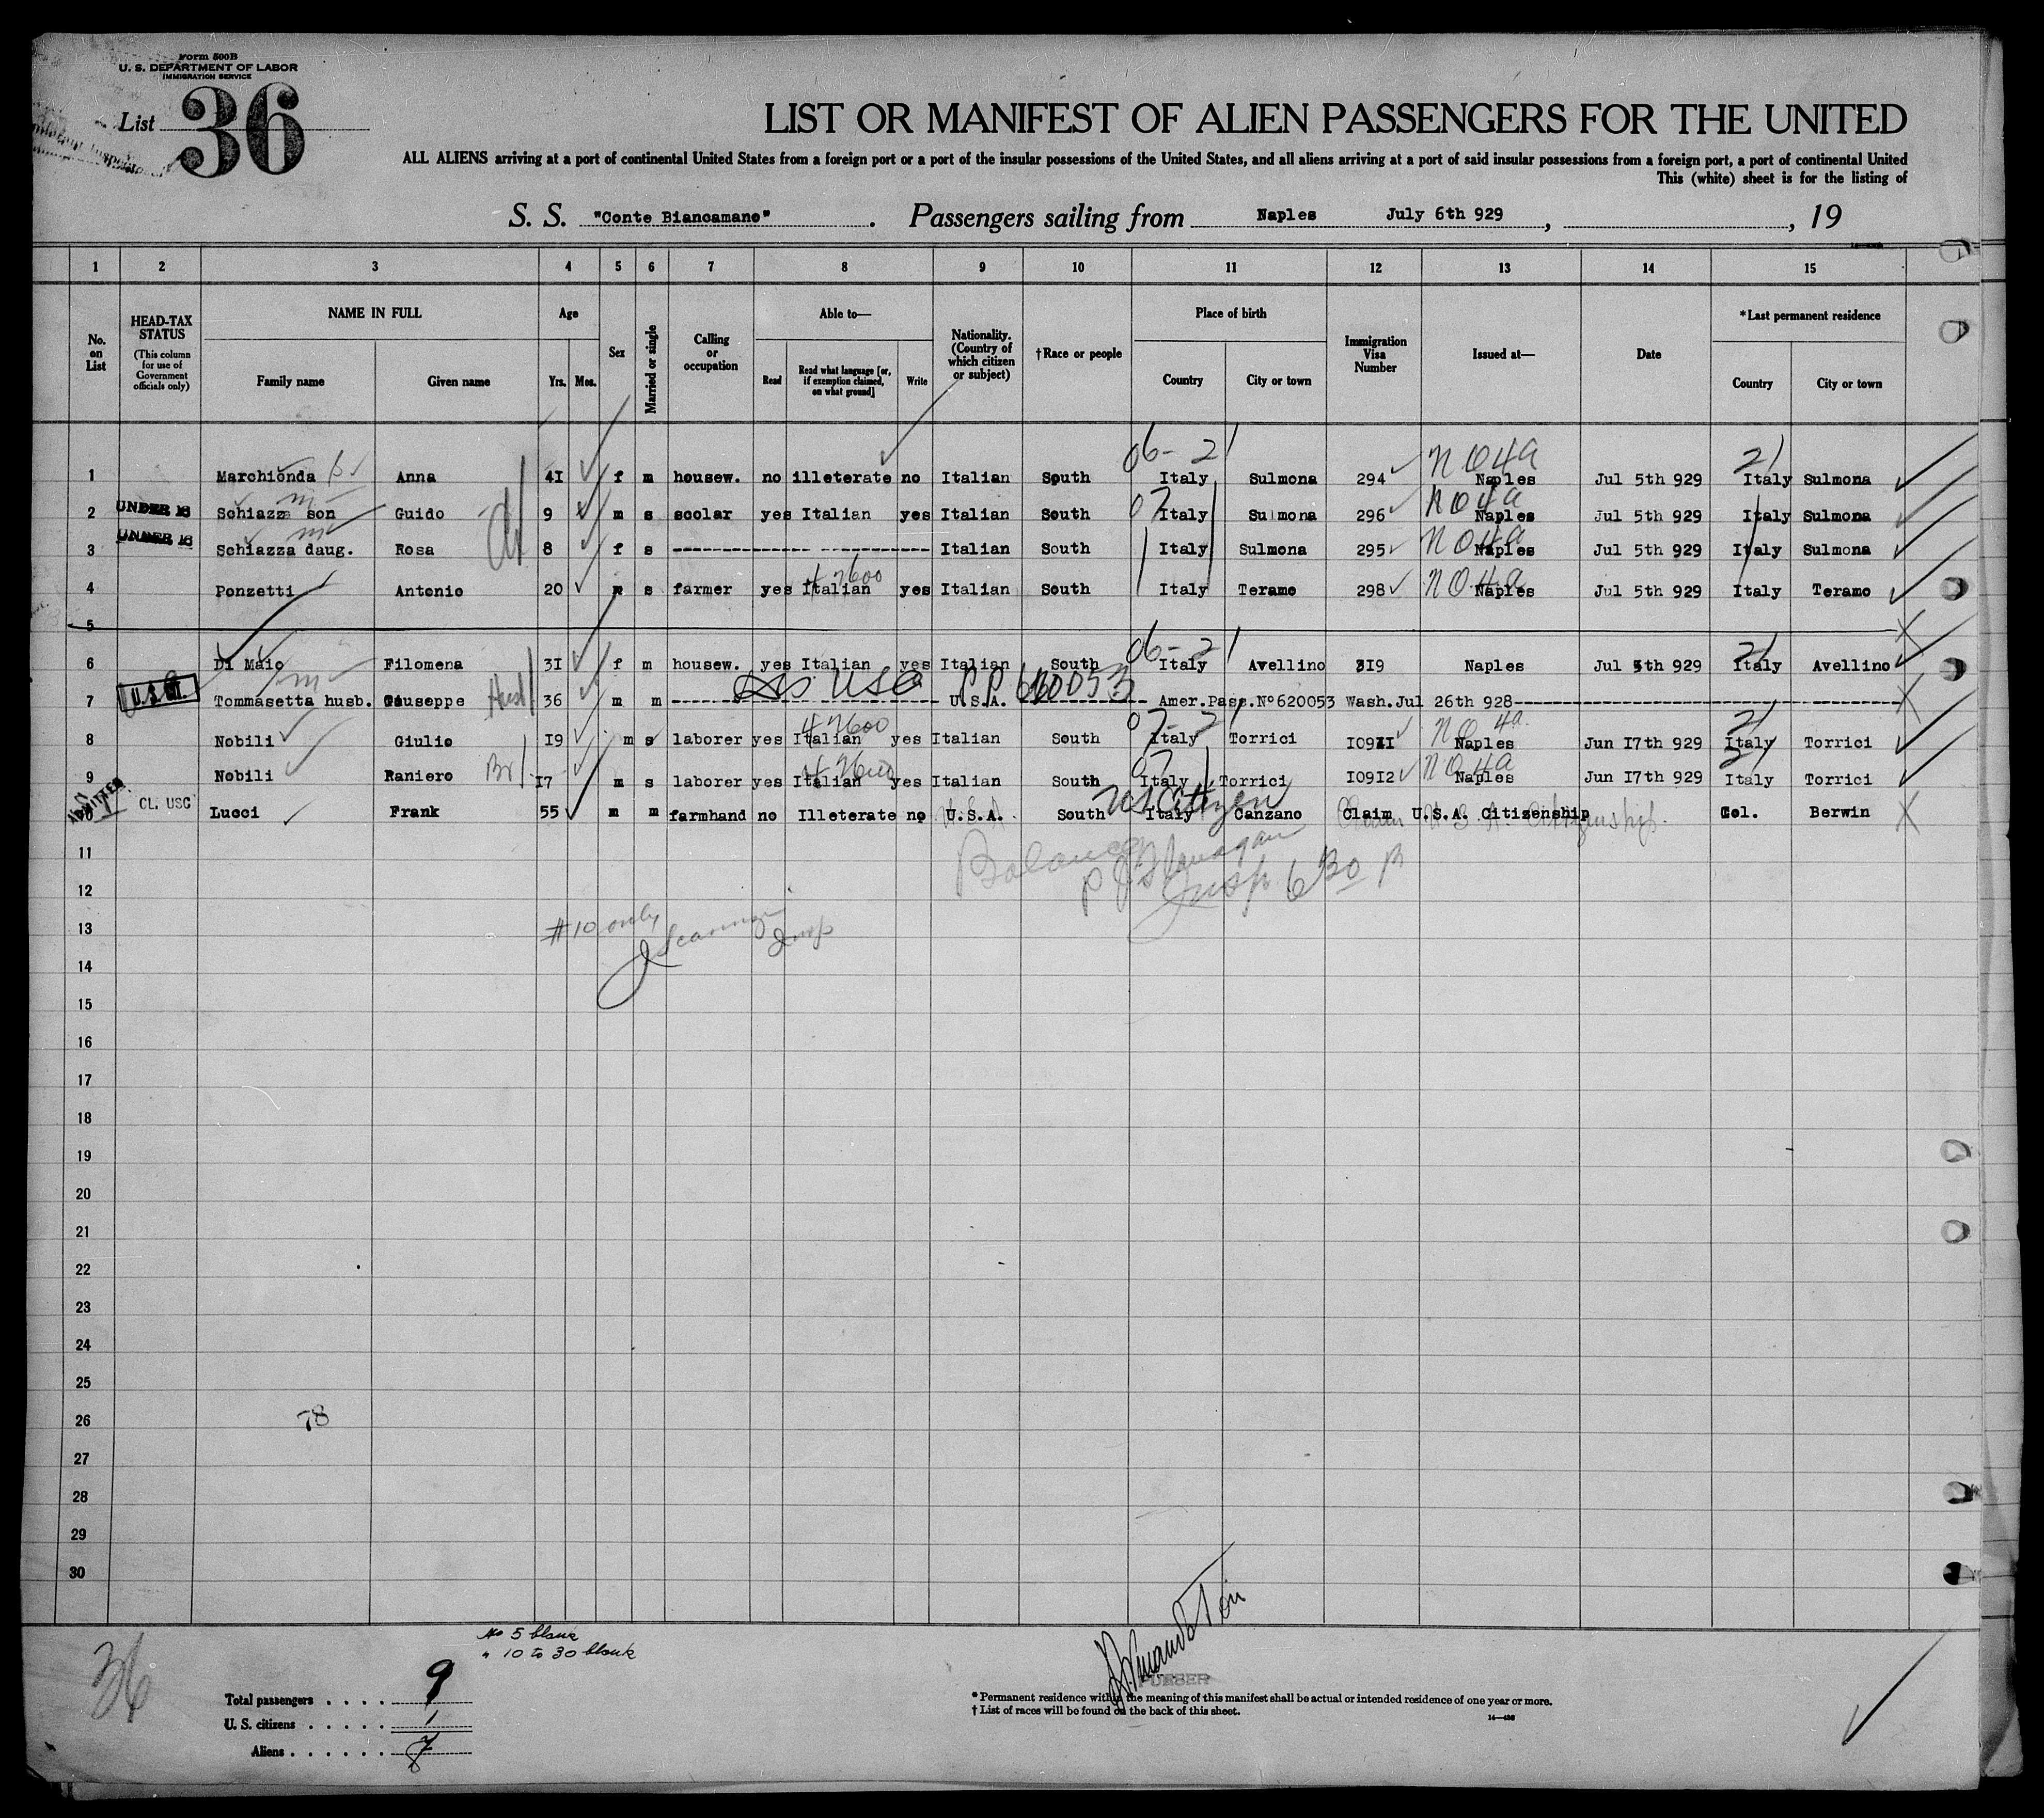 Form 500B
U. S. DEPARTMENT OF LABOR
IMMIGRATION SERVICE
List 36
LIST OR MANIFEST OF ALIEN PASSENGERS FOR THE UNITED
ALL ALIENS arriving at a port of continental United States from a foreign port or a port of the insular possessions of the United States, and all aliens arriving at a port of said insular possessions from a foreign port, a port of continental United
This (white) sheet is for the listing of
S. S. "Conte Biancamano". Passengers sailing from Naples July 6th 929, , 19
1 2 3 4 5 6 7 8 9 10 11 12 13 14 15
No. on List
HEAD-TAX STATUS (This column for use of Government officials only)
NAME IN FULL
Family name Given name
Age
Yrs. Mos.
Sex
Married or single
Calling or occupation
Able to—
Read Read what language [or, if exemption claimed, on what ground] Write
Nationality. (Country of which citizen or subject)
†Race or people
Place of birth
Country City or town
Immigration Visa Number
Issued at—
Date
*Last permanent residence
Country City or town
06- 21 NO4a 21
1 Marchionda Anna 4I f m housew. no illeterate no Italian South Italy Sulmona 294 Naples Jul 5th 929 Italy Sulmona
07 NO4a
2 UNDER 16 Schiazza son Guido 9 m s scolar yes Italian yes Italian South Italy Sulmona 296 Naples Jul 5th 929 Italy Sulmona
NO4a
3 UNDER 16 Schiazza daug. Rosa 8 f s ---------------- Italian South Italy Sulmona 295 Naples Jul 5th 929 Italy Sulmona
NO4a
4 Ponzetti Antonio 20 m s farmer yes Italian yes Italian South Italy Teramo 298 Naples Jul 5th 929 Italy Teramo
5
06- 21 21
6 Di Maio Filomena 3I f m housew. yes Italian yes Italian South Italy Avellino 3I9 Naples Jul 5th 929 Italy Avellino
USC PP 620053
7 U.S. CIT. Tommasetta husb. Giuseppe Husb 36 m m ---------------- U.S.A. ---------------- Amer.Pass.Nº620053 Wash.Jul 26th 928----------------
07-21 NO 4a 21
8 Nobili Giulio I9 m s laborer yes Italian yes Italian South Italy Torrici I09II Naples Jun I7th 929 Italy Torrici
07 NO4a 21
9 Nobili Raniero Br I7 m s laborer yes Italian yes Italian South Italy Torrici I09I2 Naples Jun I7th 929 Italy Torrici
US Citizen
10 ADMITTED CL. USC Lucci Frank 55 m m farmhand no Illeterate no U.S.A. South Italy Canzano Claim U.S.A. Citizenship Col. Berwin
11
Insp 6 30 P
12
#10 only
13
Insp
14
15
16
17
18
19
20
21
22
23
24
25
26 78
27
28
29
30
No 5 blank
" 10 to 30 blank
36
PURSER
Total passengers . . . . 9
U. S. citizens . . . . . 1
Aliens . . . . . . 8
* Permanent residence within the meaning of this manifest shall be actual or intended residence of one year or more.
† List of races will be found on the back of this sheet.